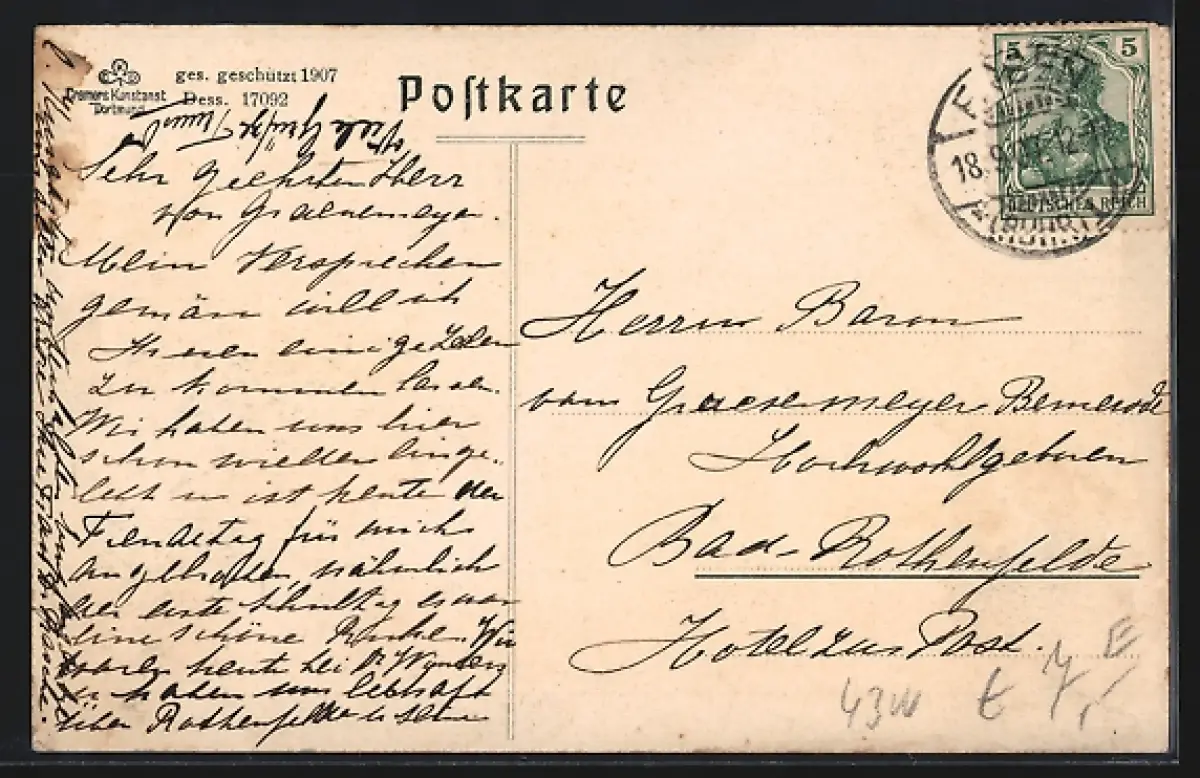 Cramers Kunstanst.
Dortmund
ges. geschützt 1907
Dess. 17092
Postkarte
Viele Grüße
5 5
DEUTSCHES REICH
ESSEN
18.9.07.12-
(RUHR)
Sehr geehrter Herr
von Graevemeyer.
Mein Versprechen
gemäss will ich
Ihnen einige Zeilen
zu kommen lassen.
Wir haben uns hier
schon wieder einge-
lebt u ist heute der
für mich
angebrochen, nämlich
der erste Schultag es war
eine schöne Ruhe. Wir
waren heute bei Dr
u haben uns lebhaft
über Rothenfelde u seine
Herrn Baron
von Graevemeyer Bemerode
Hochwohlgeboren
Bad-Rothenfelde
Hotel zur Post.
43W
E